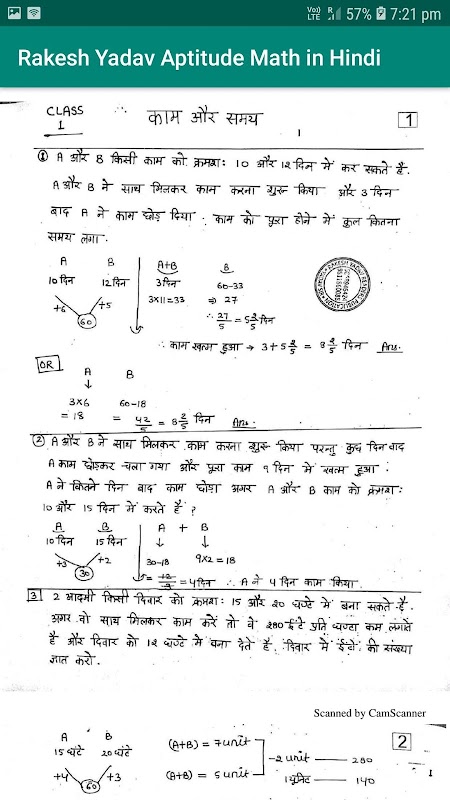 Voo)
LTE
R
57%
7:21 pm
Rakesh Yadav Aptitude Math in Hindi
CLASS 1 ∴ काम और समय 1
1
① A और B किसी काम को क्रमशः 10 और 12 दिन में कर सकते है.
A और B ने साथ मिलकर काम करना शुरू किया और 3 दिन
बाद A ने काम छोड़ दिया . काम को पूरा होने में कुल कितना
समय लगा.
A B A+B B
10 दिन 12 दिन 3 दिन 60-33
+6 +5 3x11=33 ⇒ 27
60 ∴ 27/5 = 5 2/5 दिन
∴ काम खत्म हुआ → 3+5 2/5 = 8 2/5 दिन Ans.
OR
A B
3x6 60-18
= 18 = 42/5 = 8 2/5 दिन Ans.
② A और B ने साथ मिलकर काम करना शुरू किया परन्तु कुछ दिन बाद
A काम छोड़कर चला गया और पूरा काम 9 दिन में खत्म हुआ.
A ने कितने दिन बाद काम छोड़ा अगर A और B काम को क्रमशः
10 और 15 दिन में करते हैं ?
A B A + B
10 दिन 15 दिन
+3 +2 30-18 9x2=18
30 = 12/3 = 4 दिन ∴ A ने 4 दिन काम किया.
3 2 आदमी किसी दिवार को क्रमशः 15 और 20 घण्टे में बना सकते है.
अगर वो साथ मिलकर काम करें तो वे 280 ईंटे प्रति घण्टा कम लगाते
है और दिवार को 12 घण्टे में बना देते है. दिवार में ईंटो की संख्या
ज्ञात करो.
Scanned by CamScanner
2
A B (A+B) = 7 unit
15 घंटे 20 घंटे -2 unit — 280
+4 +3 (A+B) = 5 unit 1 यूनिट — 140
60